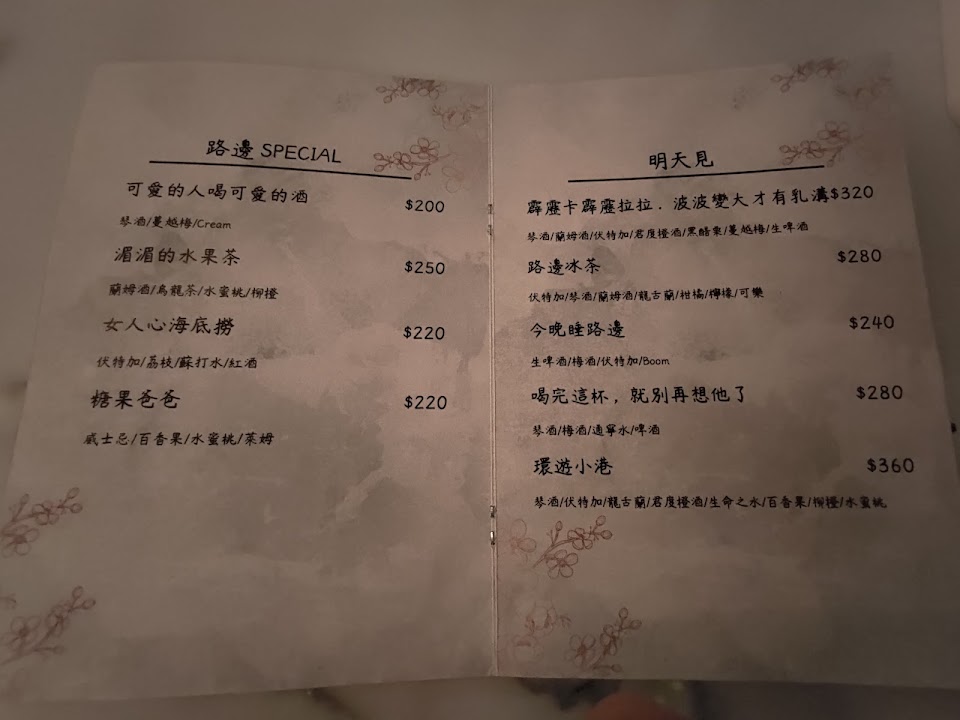 路邊 SPECIAL
可愛的人喝可愛的酒 $200
琴酒/蔓越梅/Cream
湄湄的水果茶 $250
蘭姆酒/烏龍茶/水蜜桃/柳橙
女人心海底撈 $220
伏特加/荔枝/蘇打水/紅酒
糖果爸爸 $220
威士忌/百香果/水蜜桃/萊姆
明天見
霹靂卡霹靂拉拉．波波變大才有乳溝$320
琴酒/蘭姆酒/伏特加/君度橙酒/黑醋栗/蔓越梅/生啤酒
路邊冰茶 $280
伏特加/琴酒/蘭姆酒/龍古蘭/柑橘/檸檬/可樂
今晚睡路邊 $240
生啤酒/梅酒/伏特加/Boom
喝完這杯，就別再想他了 $280
琴酒/梅酒/通寧水/啤酒
環遊小港 $360
琴酒/伏特加/龍古蘭/君度橙酒/生命之水/百香果/柳橙/水蜜桃